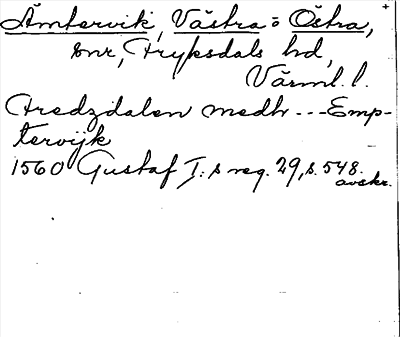 Ämtervik, Västra o Östra,
snr, Fryksdals hd,
Värml. l.
Fredzdalen medh --- Emp-
tervijk
1560 Gustaf I:s reg. 29, s. 548.
avskr.